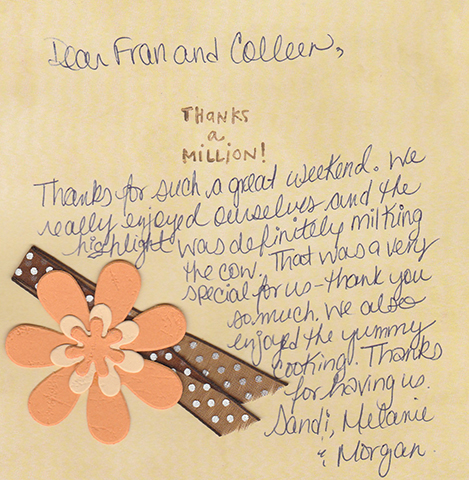 Dear Fran and Colleen,
THANKS
a
MILLION!
Thanks for such a great weekend. We
really enjoyed ourselves and the
highlight was definitely milking
the cow. That was a very
special for us - thank you
so much. We also
enjoyed the yummy
cooking. Thanks
for having us.
Sandi, Melanie
& Morgan.